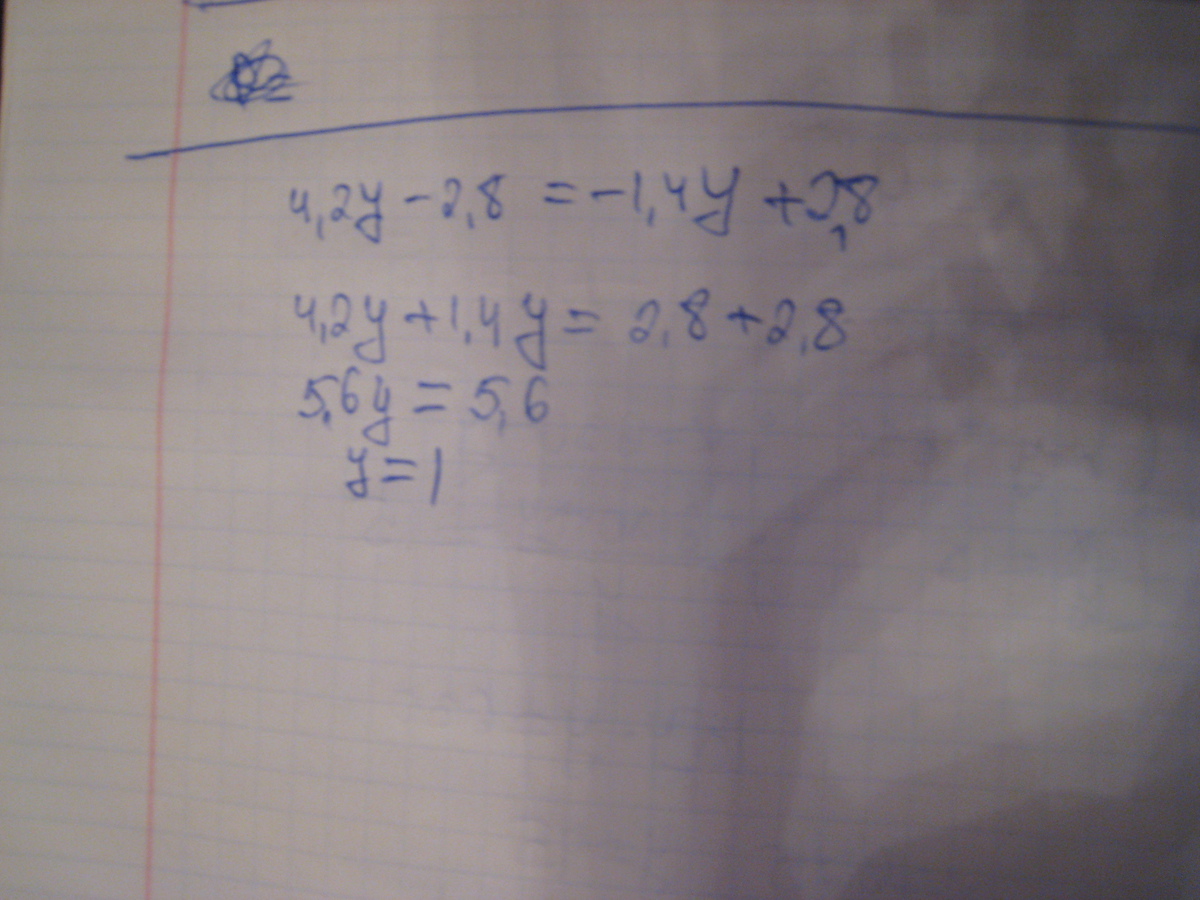 4,2y - 2,8 = -1,4y + 2,8
4,2y + 1,4y = 2,8 + 2,8
5,6y = 5,6
y = 1